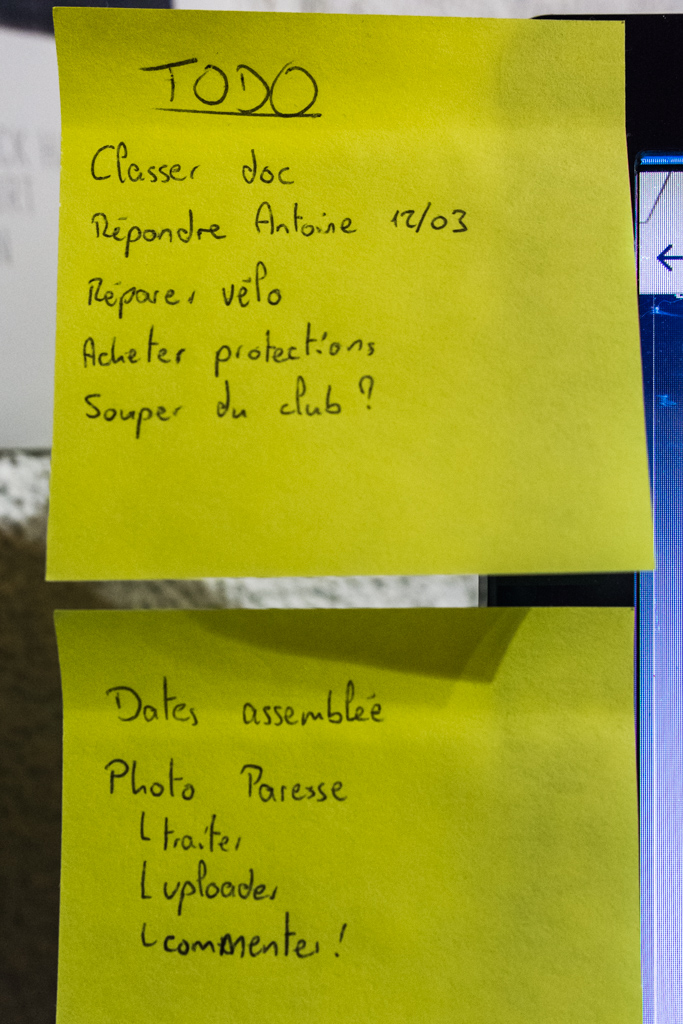 TODO
Classer doc
Répondre Antoine 12/03
Réparer vélo
Acheter protections
Souper du club ?
Dates assemblée
Photo Paresse
traiter
uploader
commenter !